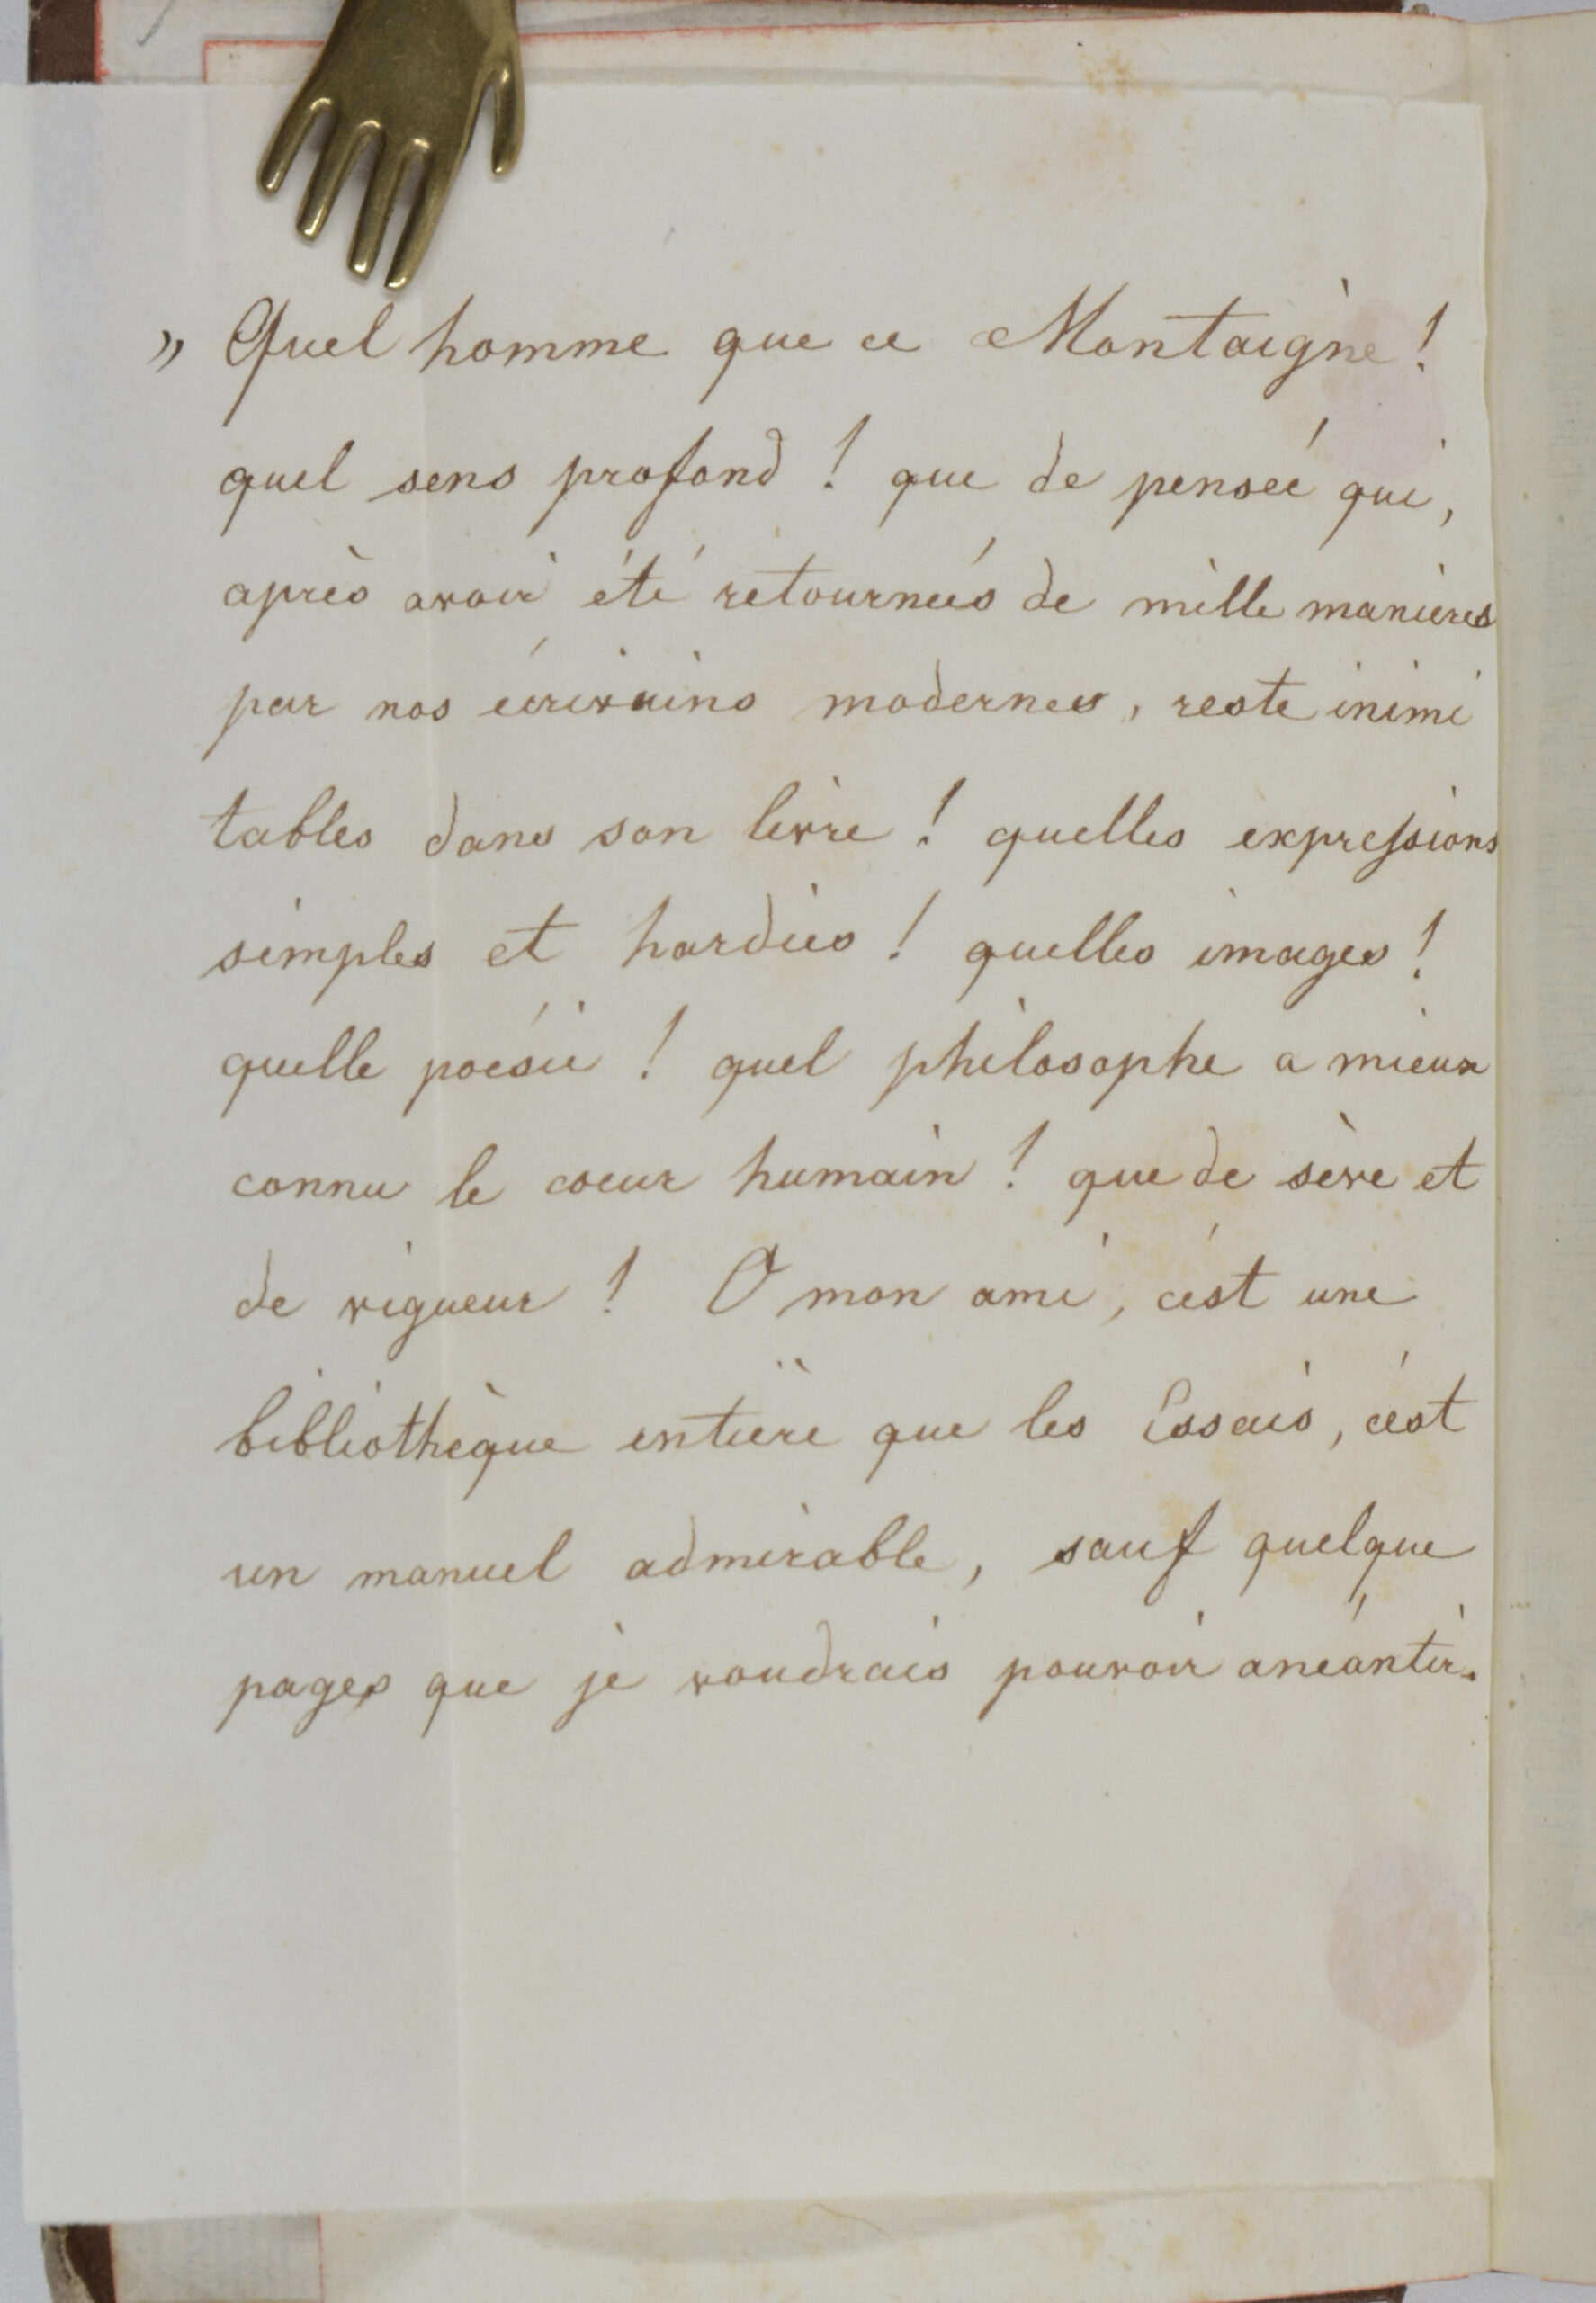 » Quel homme que ce Montaigne !
quel sens profond ! que de pensée qui,
après avoir été retournées de mille manières
par nos écrivains modernes, reste inimi
tables dans son livre ! quelles expressions
simples et hardies ! quelles images !
quelle poésie ! quel philosophe a mieux
connu le coeur humain ! que de sève et
de vigueur ! O mon ami, c'est une
bibliothèque entière que les Essais, c'est
un manuel admirable, sauf quelque
pages que je voudrais pouvoir anéantir.